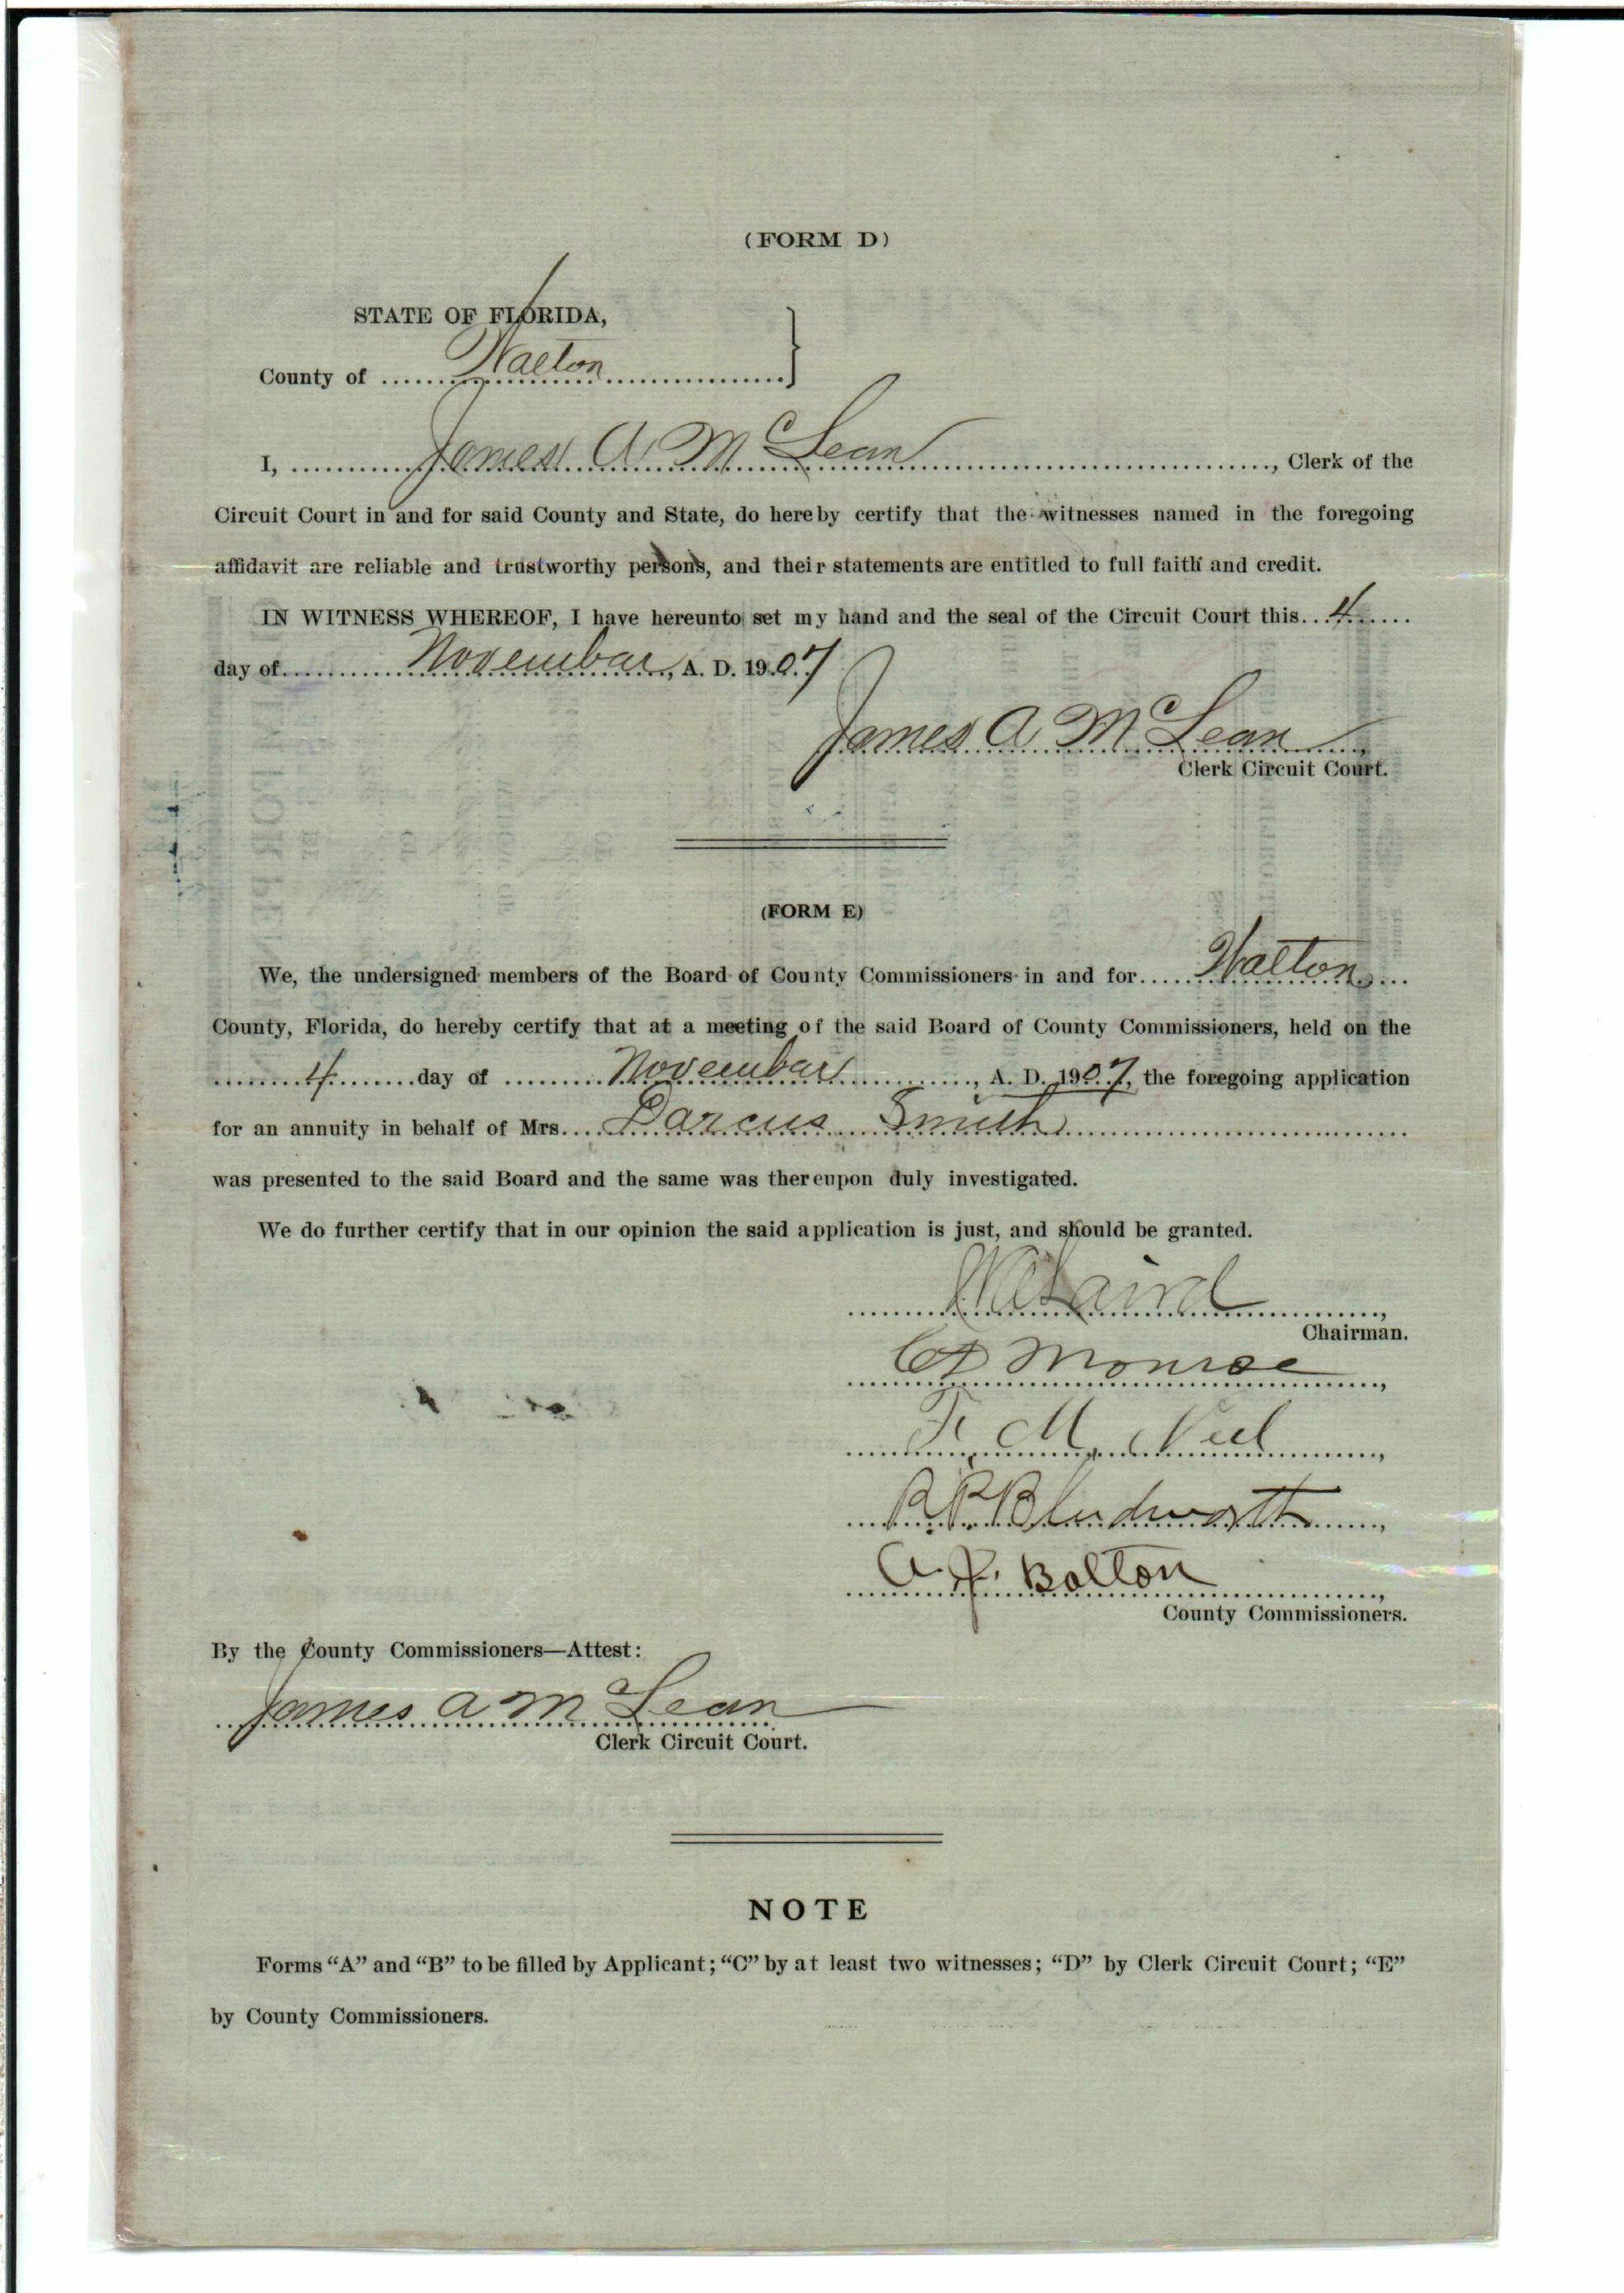 (FORM D)
STATE OF FLORIDA,
County of Walton
I, James A McLean, Clerk of the
Circuit Court in and for said County and State, do hereby certify that the witnesses named in the foregoing
affidavit are reliable and trustworthy persons, and their statements are entitled to full faith and credit.
IN WITNESS WHEREOF, I have hereunto set my hand and the seal of the Circuit Court this 4
day of November, A. D. 1907
James A McLean,
Clerk Circuit Court.
(FORM E)
We, the undersigned members of the Board of County Commissioners in and for Walton
County, Florida, do hereby certify that at a meeting of the said Board of County Commissioners, held on the
4 day of November, A. D. 1907, the foregoing application
for an annuity in behalf of Mrs. Darcus Smith
was presented to the said Board and the same was thereupon duly investigated.
We do further certify that in our opinion the said application is just, and should be granted.
Laird,
Chairman.
Monroe,
F. M. Neel,
R.P. Bludworth,
A. J. Bolton,
County Commissioners.
By the County Commissioners—Attest:
James A McLean
Clerk Circuit Court.
NOTE
Forms “A” and “B” to be filled by Applicant; “C” by at least two witnesses; “D” by Clerk Circuit Court; “E”
by County Commissioners.